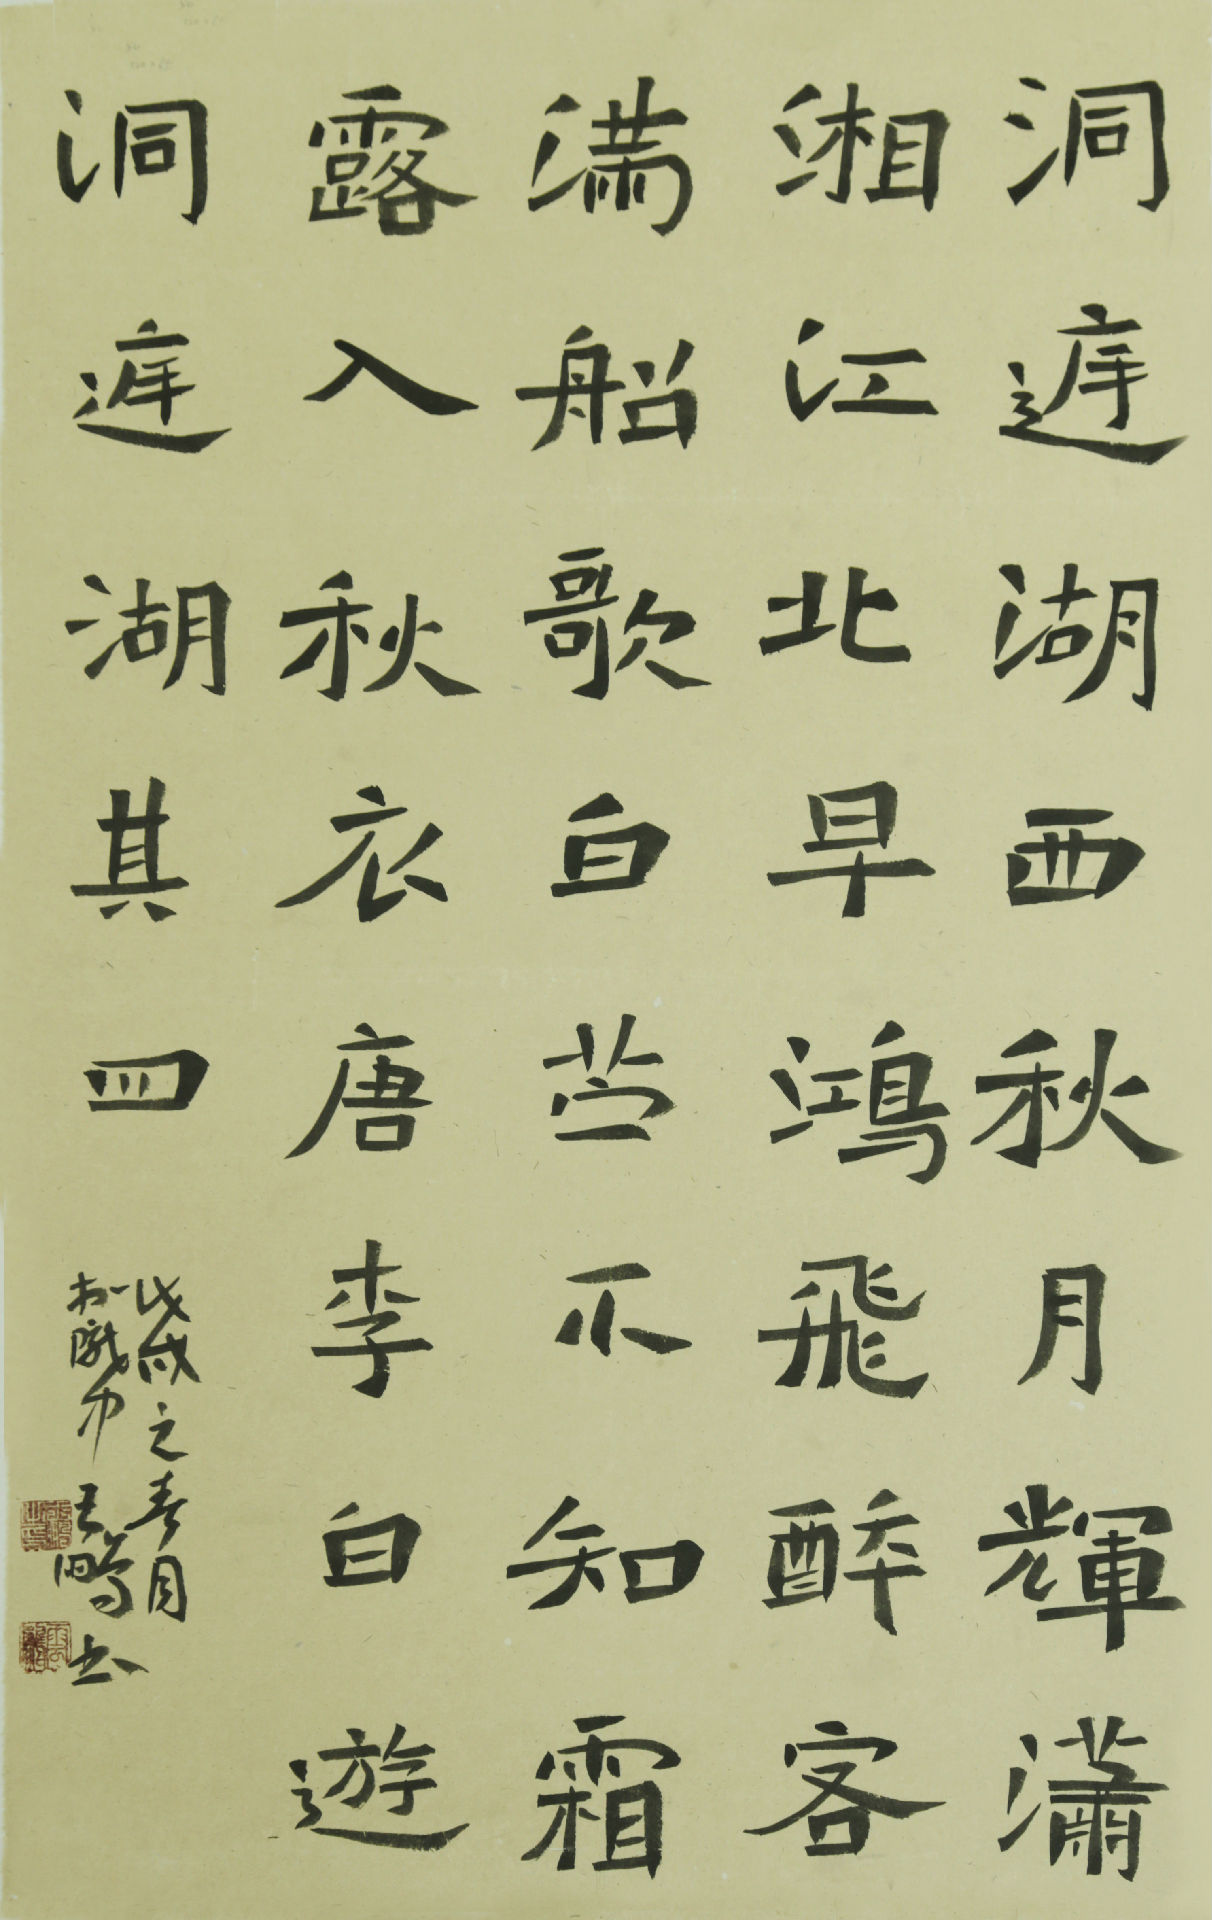 洞遟湖西秋月輝瀟
湘江北早鴻飛醉客
满船歌白苎不知霜
露入秋衣唐李白遊
洞遟湖其四
戊戌之春月
書